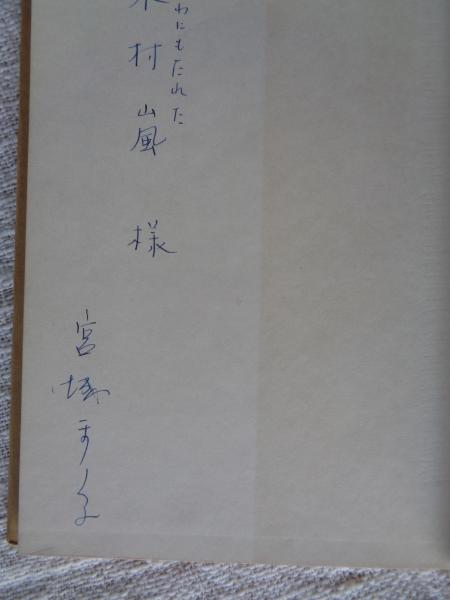 わにもたれた
木村嵐 様
宮城まり子